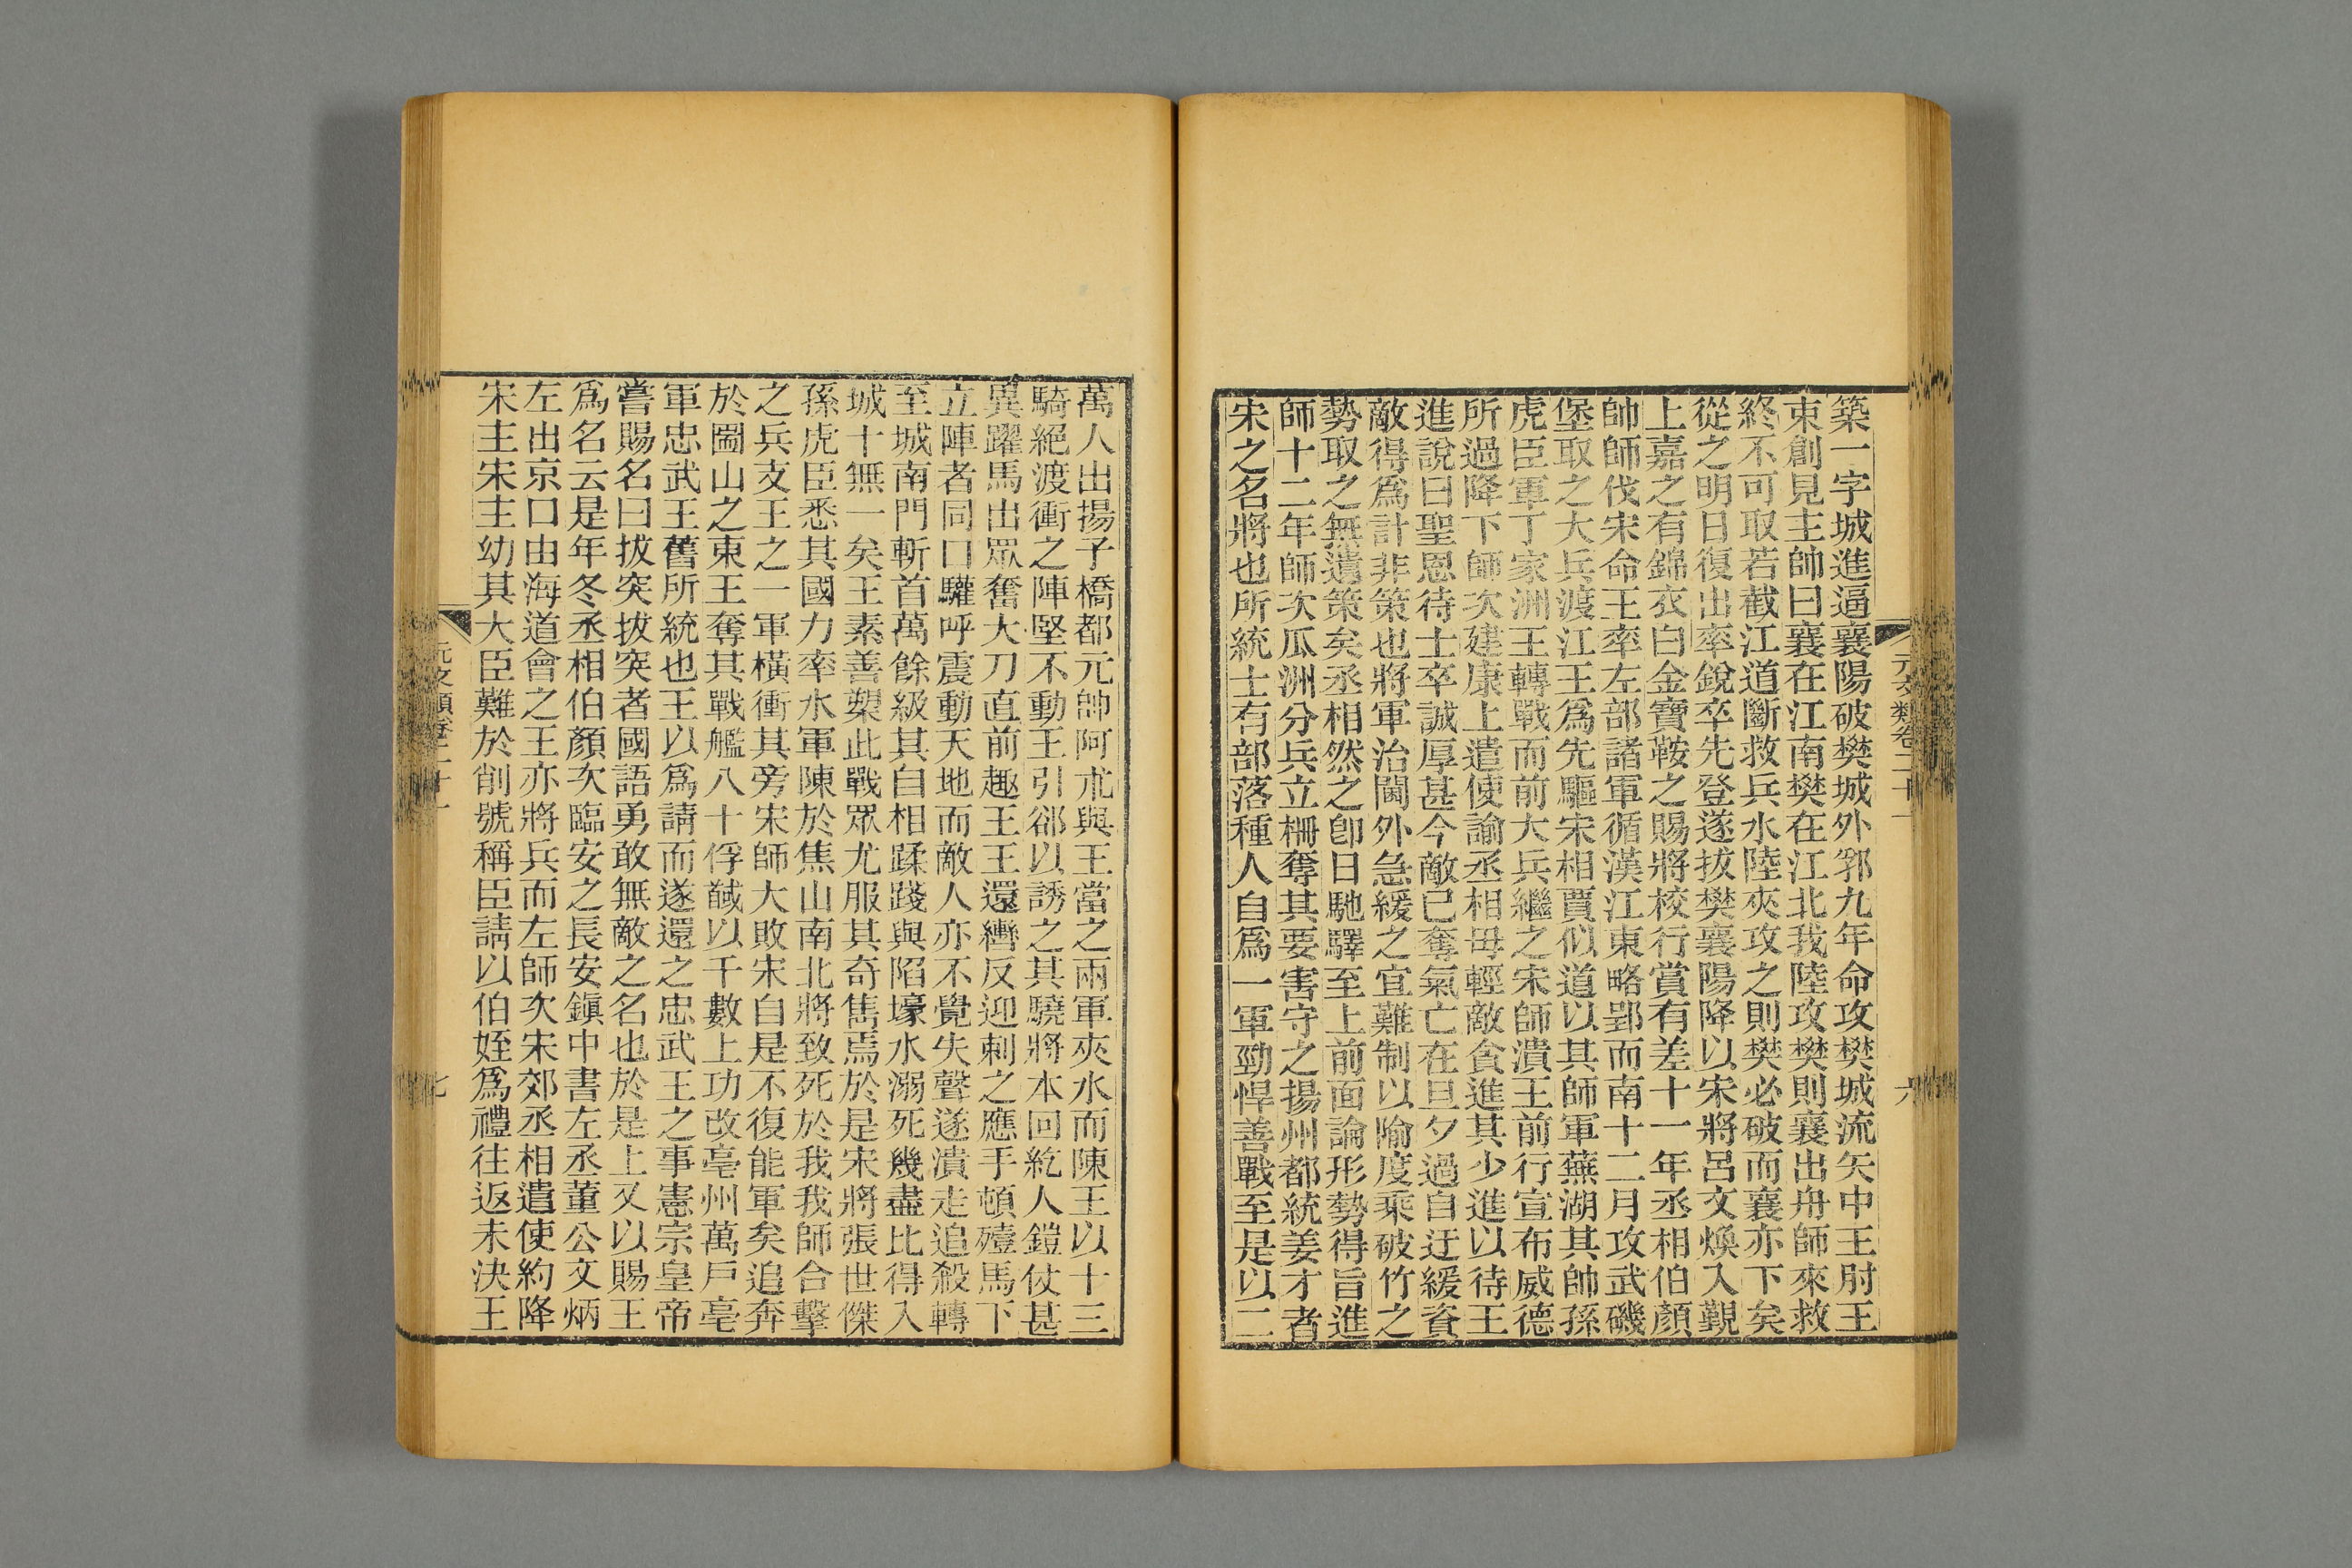 築一字城進逼襄陽破樊城外郛九年命攻樊城流矢中王肘王
束創見主帥曰襄在江南樊在江北我陸攻樊則襄出舟師來救
終不可取若截江道斷救兵水陸夾攻之則樊必破而襄亦下矣
從之明日復出率銳卒先登遂拔樊襄陽降以宋將呂文煥入覲
上嘉之有錦衣白金寶鞍之賜將校行賞有差十一年丞相伯顏
帥師伐宋命王率左部諸軍循漢江東略郢而南十二月攻武磯
堡取之大兵渡江王爲先驅宋相賈似道以其師軍蕪湖其帥孫
虎臣軍丁家洲王轉戰而前大兵繼之宋師潰王前行宣布威德
所過降下師次建康上遣使諭丞相毋輕敵貪進其少進以待王
進說曰聖恩待士卒誠厚甚今敵已奪氣亡在旦夕過自迂緩資
敵得爲計非策也將軍治閫外急緩之宜難制以隃度乘破竹之
勢取之無遺策矣丞相然之卽日馳驛至上前面論形勢得旨進
師十二年師次瓜洲分兵立柵奪其要害守之揚州都統姜才者
宋之名將也所統士有部落種人自爲一軍勁悍善戰至是以二
元文類卷二十一
六
萬人出揚子橋都元帥阿朮與王當之兩軍夾水而陳王以十三
騎絕渡衝之陣堅不動王引郤以誘之其驍將本回紇人鎧仗甚
異躍馬出眾奮大刀直前趣王王還轡反迎刺之應手頓殪馬下
立陣者同口驩呼震動天地而敵人亦不覺失聲遂潰走追殺轉
至城南門斬首萬餘級其自相蹂踐與陷壕水溺死幾盡比得入
城十無一矣王素善槊此戰眾尤服其奇雋焉於是宋將張世傑
孫虎臣悉其國力率水軍陳於焦山南北將致死於我我師合擊
之兵支王之一軍橫衝其旁宋師大敗宋自是不復能軍矣追奔
於圌山之東王奪其戰艦八十俘馘以千數上功改亳州萬戶亳
軍忠武王舊所統也王以爲請而遂還之忠武王之事憲宗皇帝
嘗賜名曰拔突拔突者國語勇敢無敵之名也於是上又以賜王
爲名云是年冬丞相伯顏次臨安之長安鎭中書左丞董公文炳
左出京口由海道會之王亦將兵而左師次宋郊丞相遣使約降
宋主宋主幼其大臣難於削號稱臣請以伯姪爲禮往返未決王
元文類卷二十一
七